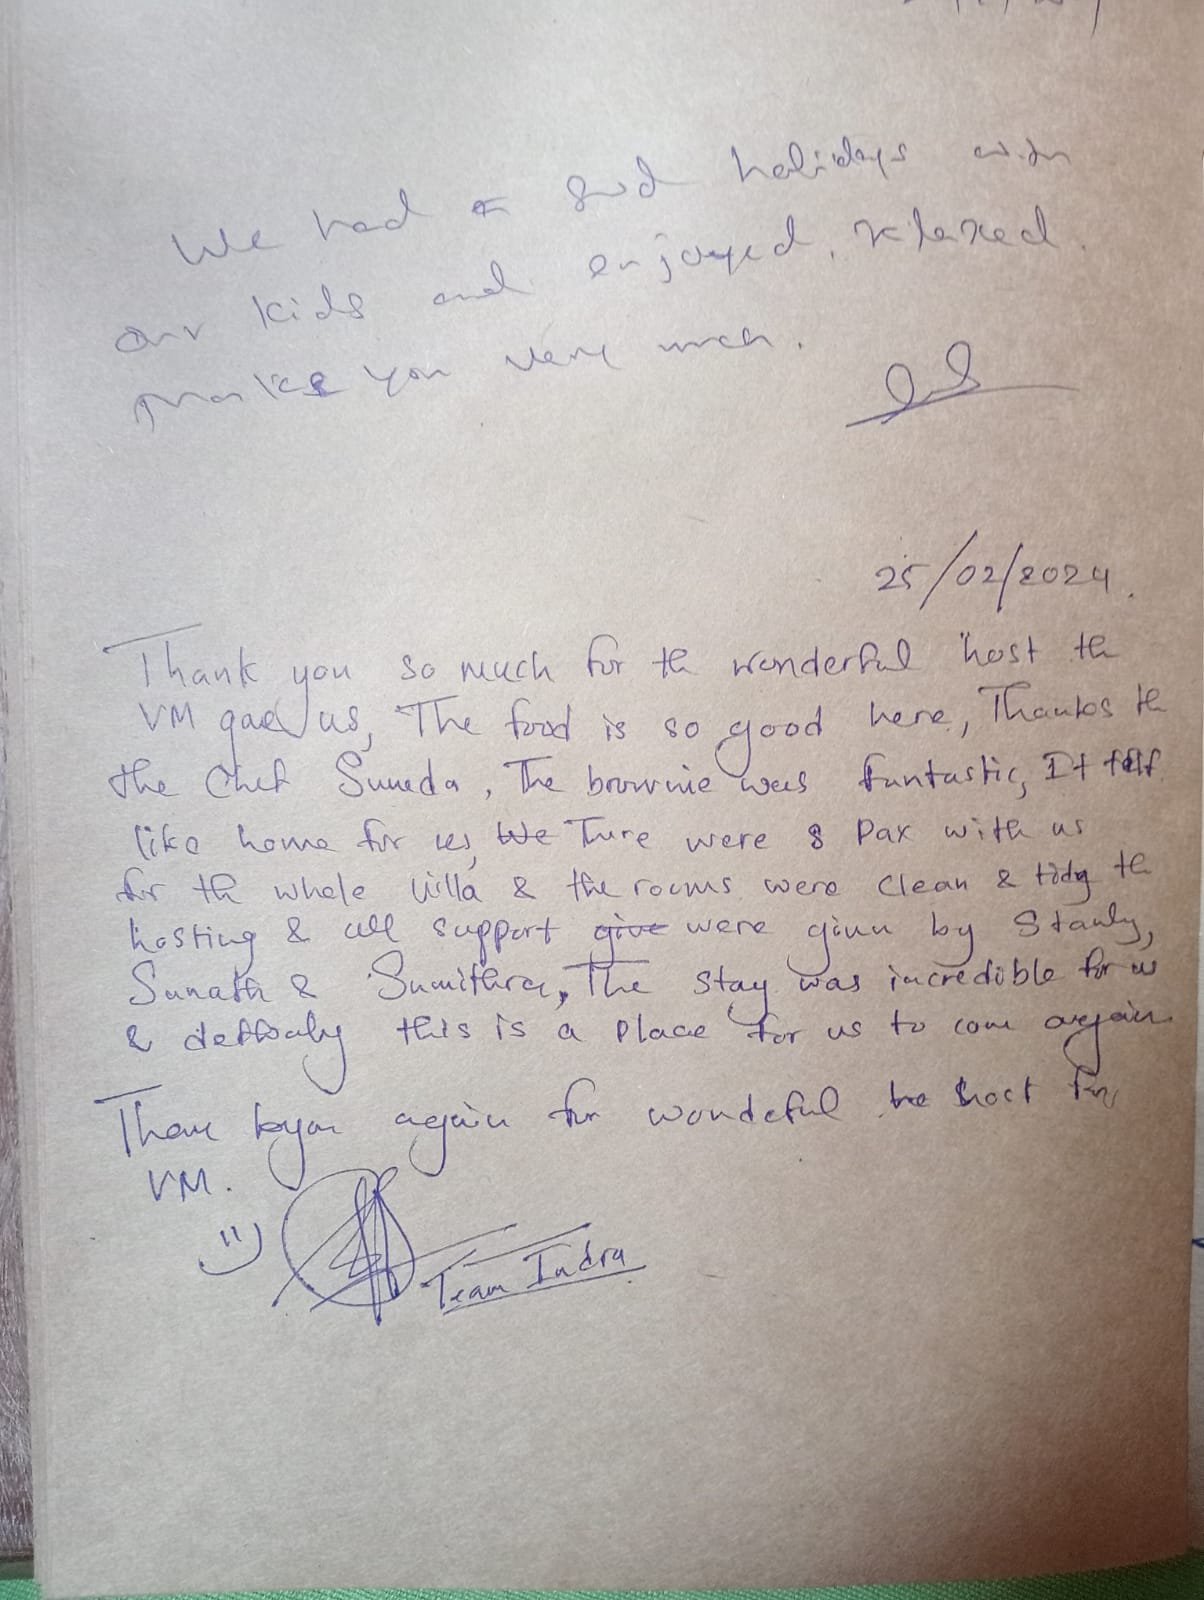 We had a good holidays with
our kids and enjoyed, relaxed.
Thanks you very much.
25/02/2024.
Thank you so much for th wonderful host th
VM gave us, The food is so good here, Thanks th
the Chef Sumeda, The brownie was funtastic, It felt
like home for us, We There were 8 Pax with us
for th whole Villa & the rooms were clean & tidy th
hosting & all support give were givin by Stanly,
Sanath & Sumithra, The stay was incredible for us
& deffinaly this is a place for us to come again
Thank you again for wondeful host
VM.
Team Indra